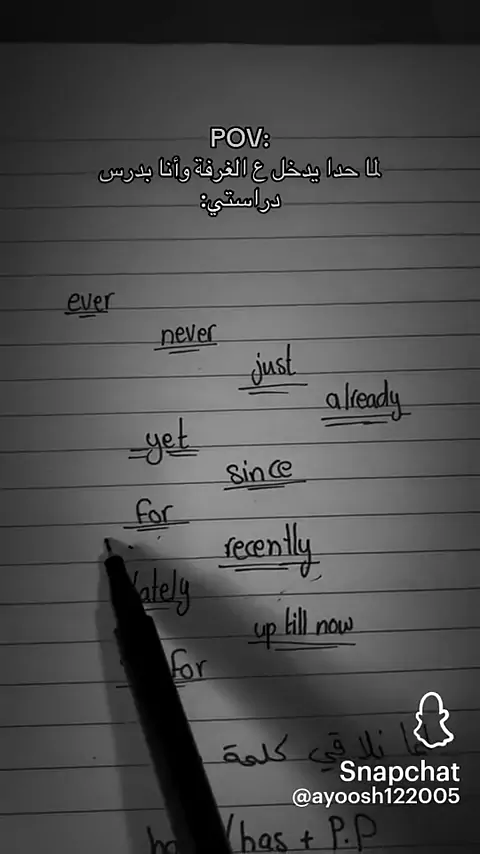 POV:
لما حدا يدخل ع الغرفة وأنا بدرس
دراستي:
ever
never
just
already
yet
since
for
recently
lately
up till now
for
نلاقي كلمة
Snapchat
@ayoosh122005
/has + P.P